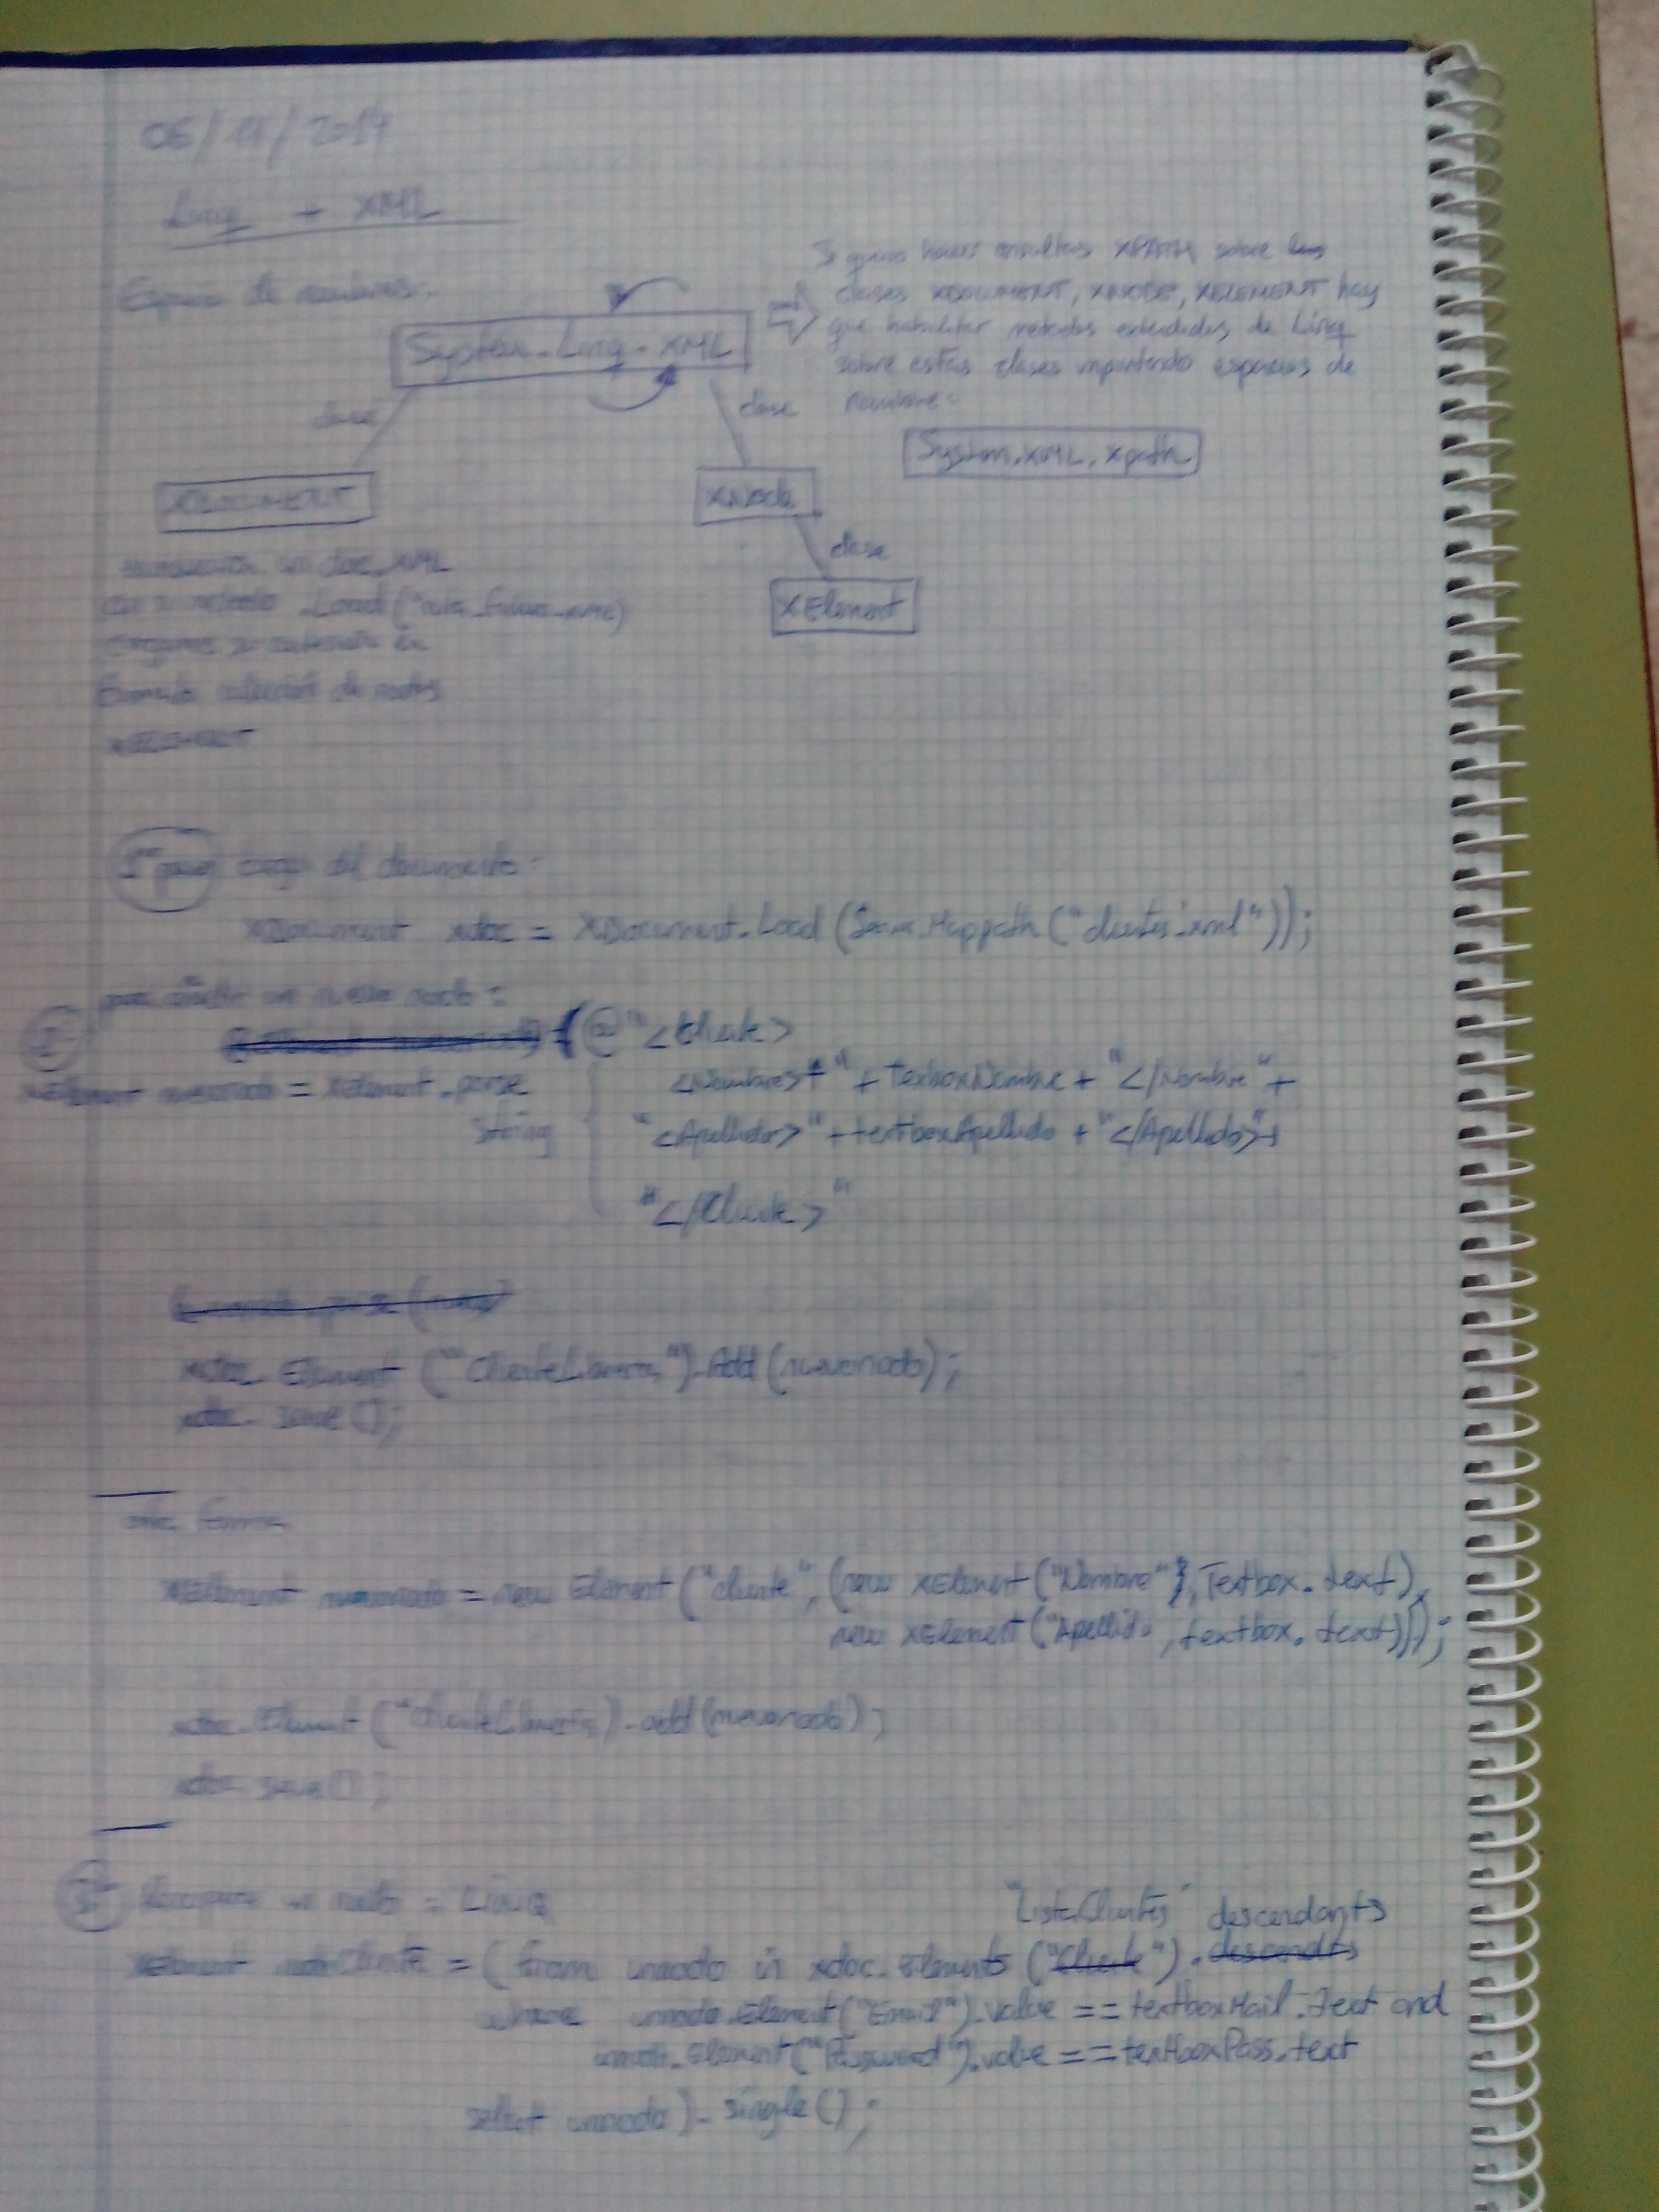 06/11/2014
Linq - XML
Espacio de nombres:
System.Linq.XML
Si quiero hacer consultas XPATH sobre las
clases XDOCUMENT, XNODE, XELEMENT hay
que habilitar metodos extendidos de Linq
sobre estas clases importando espacios de
nombre:
System.XML.Xpath
clase
clase
XDOCUMENT
XNode
clase
XElement
un doc XML
con su metodo .Load("ruta_fichero_xml)
cargamos su contenido en
formato colección de nodos
XELEMENT
1er paso carga del documento:
XDocument xdoc = XDocument.Load(Server.Mappath("clientes.xml"));
2º para añadir un nuevo nodo:
(@"<Cliente>
XElement nuevonodo = XElement.parse
<Nombre>" + TexboxNombre + "</Nombre" +
String
"<Apellido>" + textboxApellido + "</Apellido>"+
"</Cliente>"
xdoc.Element("ClienteLibreria").Add(nuevonodo);
xdoc.save();
otra forma
XElement nuevonodo = new Element("cliente", (new XElement("Nombre", Textbox.text),
new XElement("Apellido, textbox.text)));
xdoc.Element("clienteLibreria).add(nuevonodo);
xdoc.save();
3º Recuperar un nodo = LINQ
"ListaClientes" descendants
XElement nodoCliente = (from unnodo in xdoc.Elements("Cliente").descendts
where unnodo.Element("Email").value == textboxMail.Text and
unnodo.Element("Password").value == textboxPass.text
select unnodo).single();